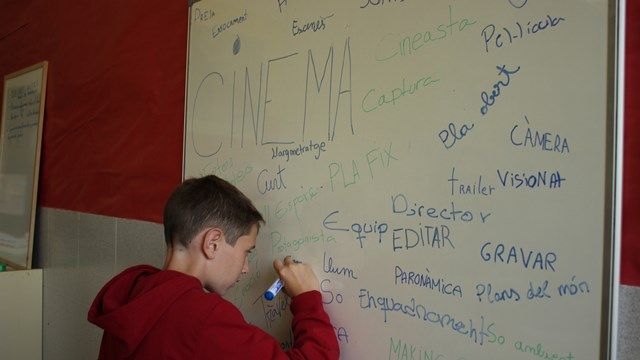 Enfocament
Escenes
Cineasta
Pel·lícula
CINEMA
Captura
Pla obert
Llargmetratge
CÀMERA
Curt
PLA FIX
TRAILER
VISIONAT
Director
Equip
EDITAR
GRAVAR
Protagonista
Llum
PARONÀMICA
Plans del món
So
Enquadrament
So ambient
MAKING